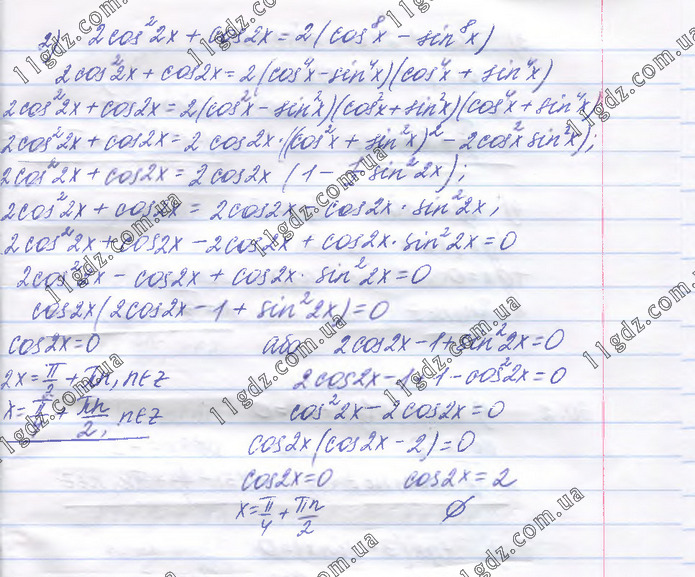 2) 2cos²2x + cos2x = 2(cos⁸x − sin⁸x)
2cos²2x + cos2x = 2(cos⁴x − sin⁴x)(cos⁴x + sin⁴x)
2cos²2x + cos2x = 2(cos²x − sin²x)(cos²x + sin²x)(cos⁴x + sin⁴x)
2cos²2x + cos2x = 2 cos2x · ((cos²x + sin²x)² − 2cos²x sin²x);
2cos²2x + cos2x = 2cos2x (1 − ½ sin²2x);
2cos²2x + cos2x = 2cos2x − cos2x · sin²2x;
2cos²2x + cos2x − 2cos2x + cos2x · sin²2x = 0
2cos²2x − cos2x + cos2x · sin²2x = 0
cos2x(2cos2x − 1 + sin²2x) = 0
cos2x = 0 або 2cos2x − 1 + sin²2x = 0
2x = π/2 + πn, n∈z 2cos2x − 1 + 1 − cos²2x = 0
x = π/4 + πn/2, n∈z cos²2x − 2cos2x = 0
cos2x(cos2x − 2) = 0
cos2x = 0 cos2x = 2
x = π/4 + πn/2 ∅
11gdz.com.ua
11gdz.com.ua
11gdz.com.ua
11gdz.com.ua
11gdz.com.ua
11gdz.com.ua
11gdz.com.ua
11gdz.com.ua
11gdz.com.ua
11gdz.com.ua